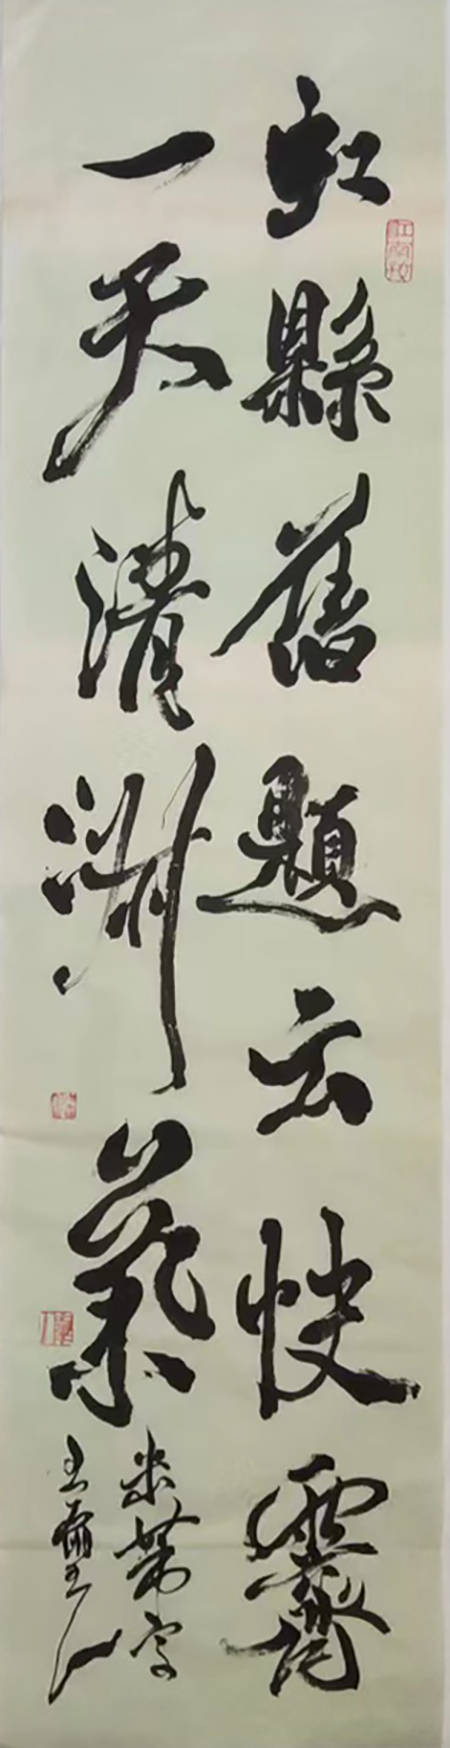 虹縣舊題云快霽
一天清淑氣
米芾字